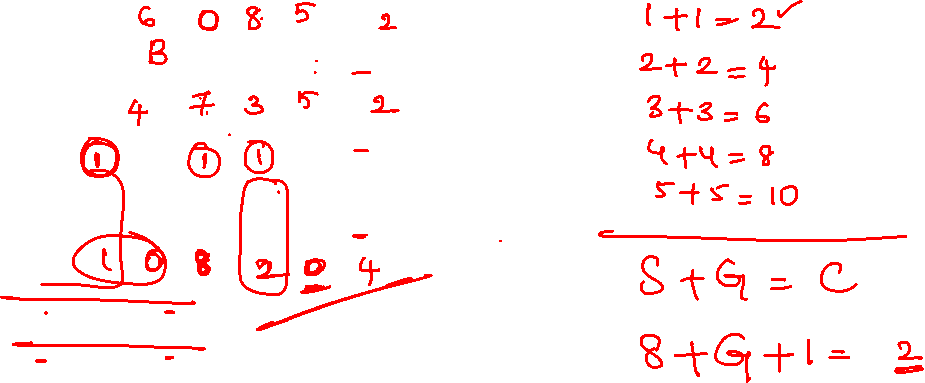 6 0 8 5 2
B
4 7 3 5 2
1 1 1
1 0 8 2 0 4
1+1=2✓
2+2=4
3+3=6
4+4=8
5+5=10
S+G=C
8+G+1=2